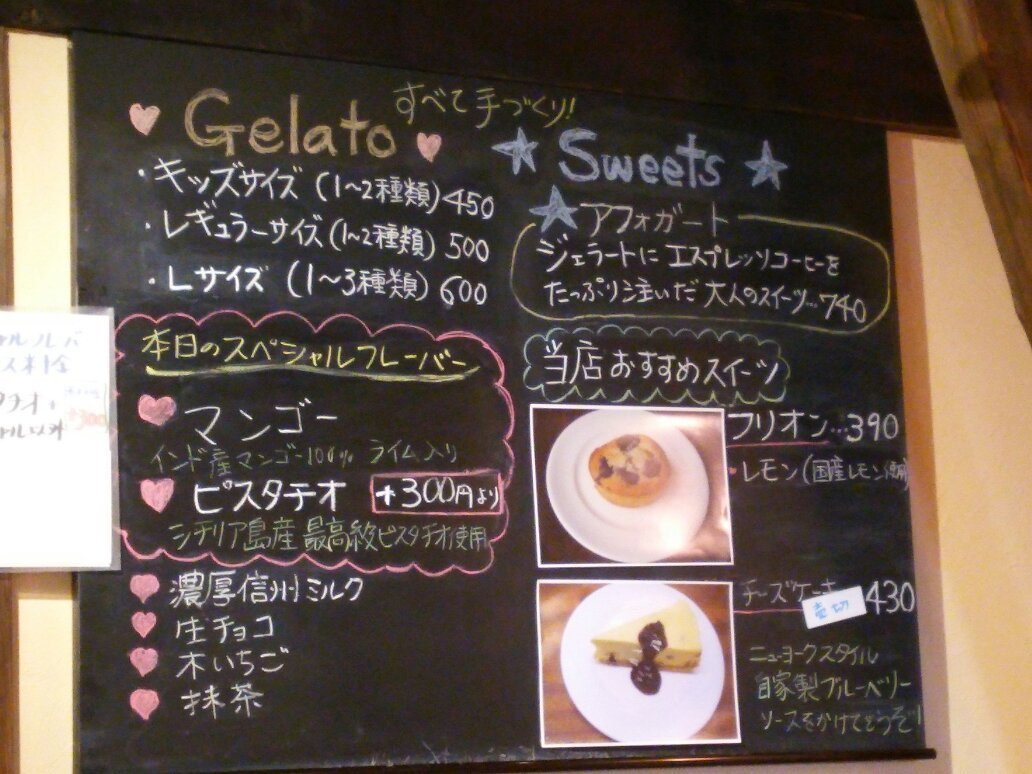 すべて手づくり!
Gelato
・キッズサイズ (1〜2種類) 450
・レギュラーサイズ (1〜2種類) 500
・Lサイズ (1〜3種類) 600
本日のスペシャルフレーバー
マンゴー
インド産マンゴー100% ライム入り
ピスタチオ +300円より
シチリア島産 最高級ピスタチオ使用
濃厚信州ミルク
生チョコ
木いちご
抹茶
Sweets
アフォガート
ジェラートにエスプレッソコーヒーを
たっぷり注いだ大人のスイーツ…740
当店おすすめスイーツ
フリオン…390
・レモン(国産レモン使用)
チーズケーキ 430
売切
ニューヨークスタイル
自家製ブルーベリー
ソースをかけてどうぞ!
+300